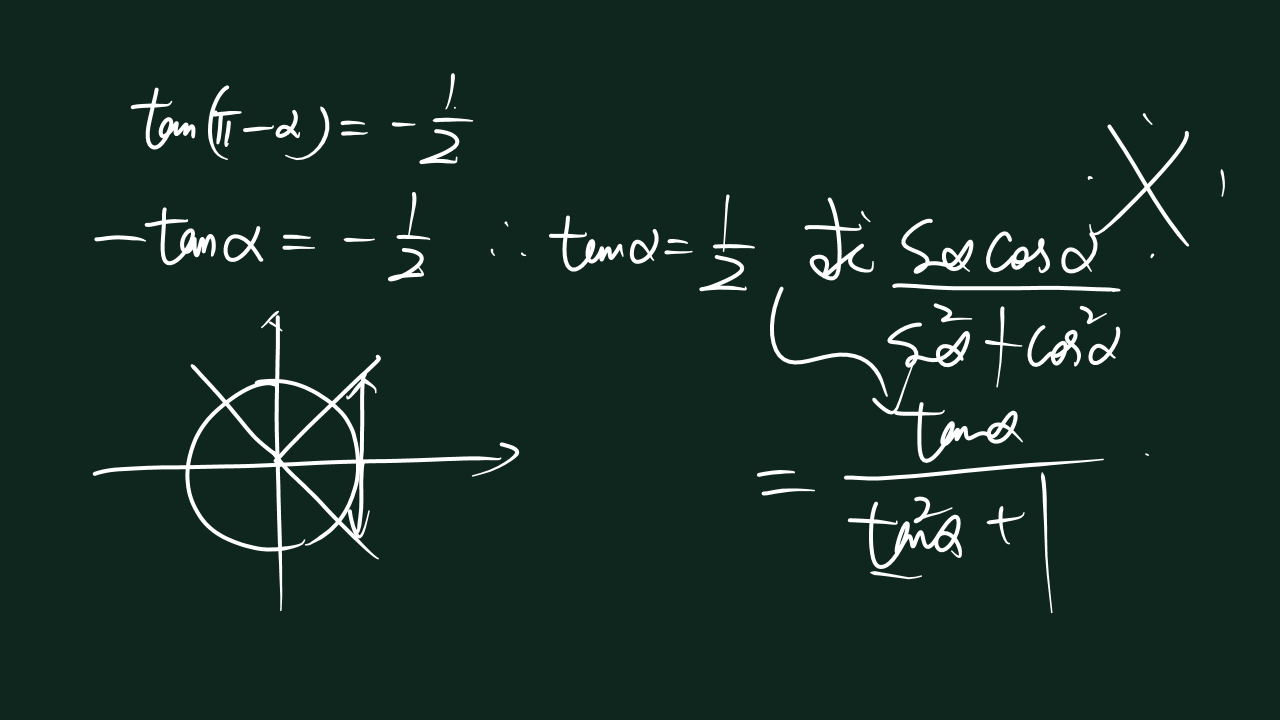 tan(π-α) = -1/2
-tanα = -1/2 ∴ tanα = 1/2 求 Sα cosα / S²α + cos²α
= tanα / tan²α + 1